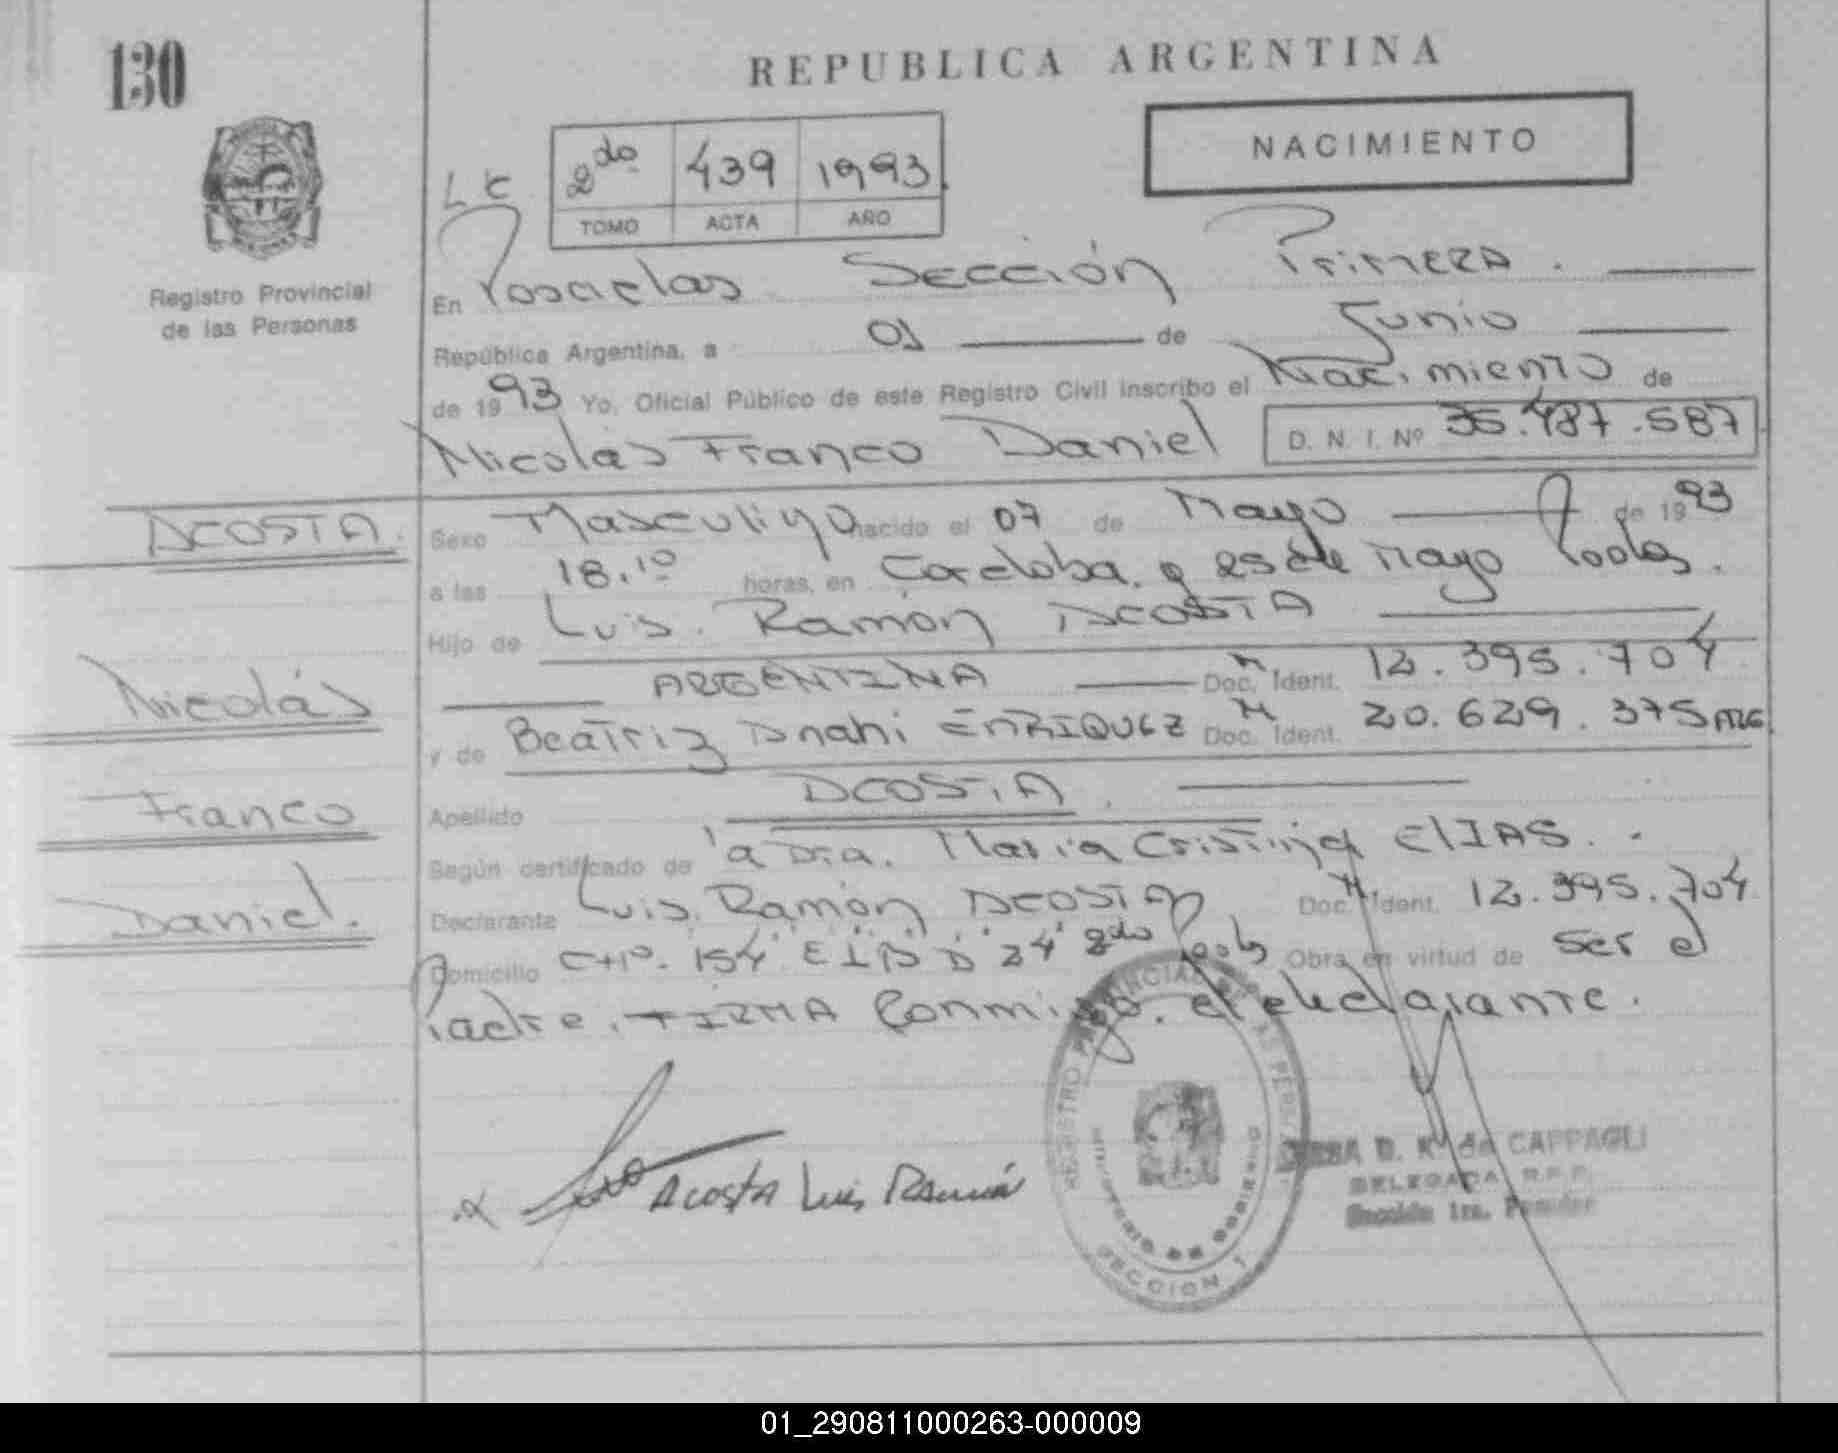 130
REPUBLICA ARGENTINA
NACIMIENTO
2do 439 1993
TOMO ACTA AÑO
Registro Provincial
de las Personas
En Posadas Sección Primera.
República Argentina, a 01 de Junio
de 1993 Yo, Oficial Público de este Registro Civil inscribo el Nacimiento de
Nicolás Franco Daniel D. N. I. Nº 35.487.587
ACOSTA.
Sexo Masculino nacido el 07 de Mayo de 1993
a las 18.10 horas, en Cordoba. y 25 de Mayo Podas.
Hijo de Luis. Ramón ACOSTA
Nicolás
ARGENTINA Doc. Ident. 12.395.704
y de Beatriz Anahi ENRIQUEZ Doc. Ident. 20.629.375 ARG.
Franco
Apellido ACOSTA.
Según certificado de la Dra. Maria Cristina ELIAS.
Daniel.
Declarante Luis. Ramón ACOSTA Doc. Ident. 12.395.704
Domicilio 154 24 2do Obra en virtud de ser el
Padre. FIRMA Conmigo. el declarante.
Acosta Luis Ramón
REGISTRO PROVINCIAL DE LAS PERSONAS
MINISTERIO DE GOBIERNO
SECCION 1
de CAPPAGLI
DELEGADA R.P.P.
Sección 1ra. Posadas
01_290811000263-000009